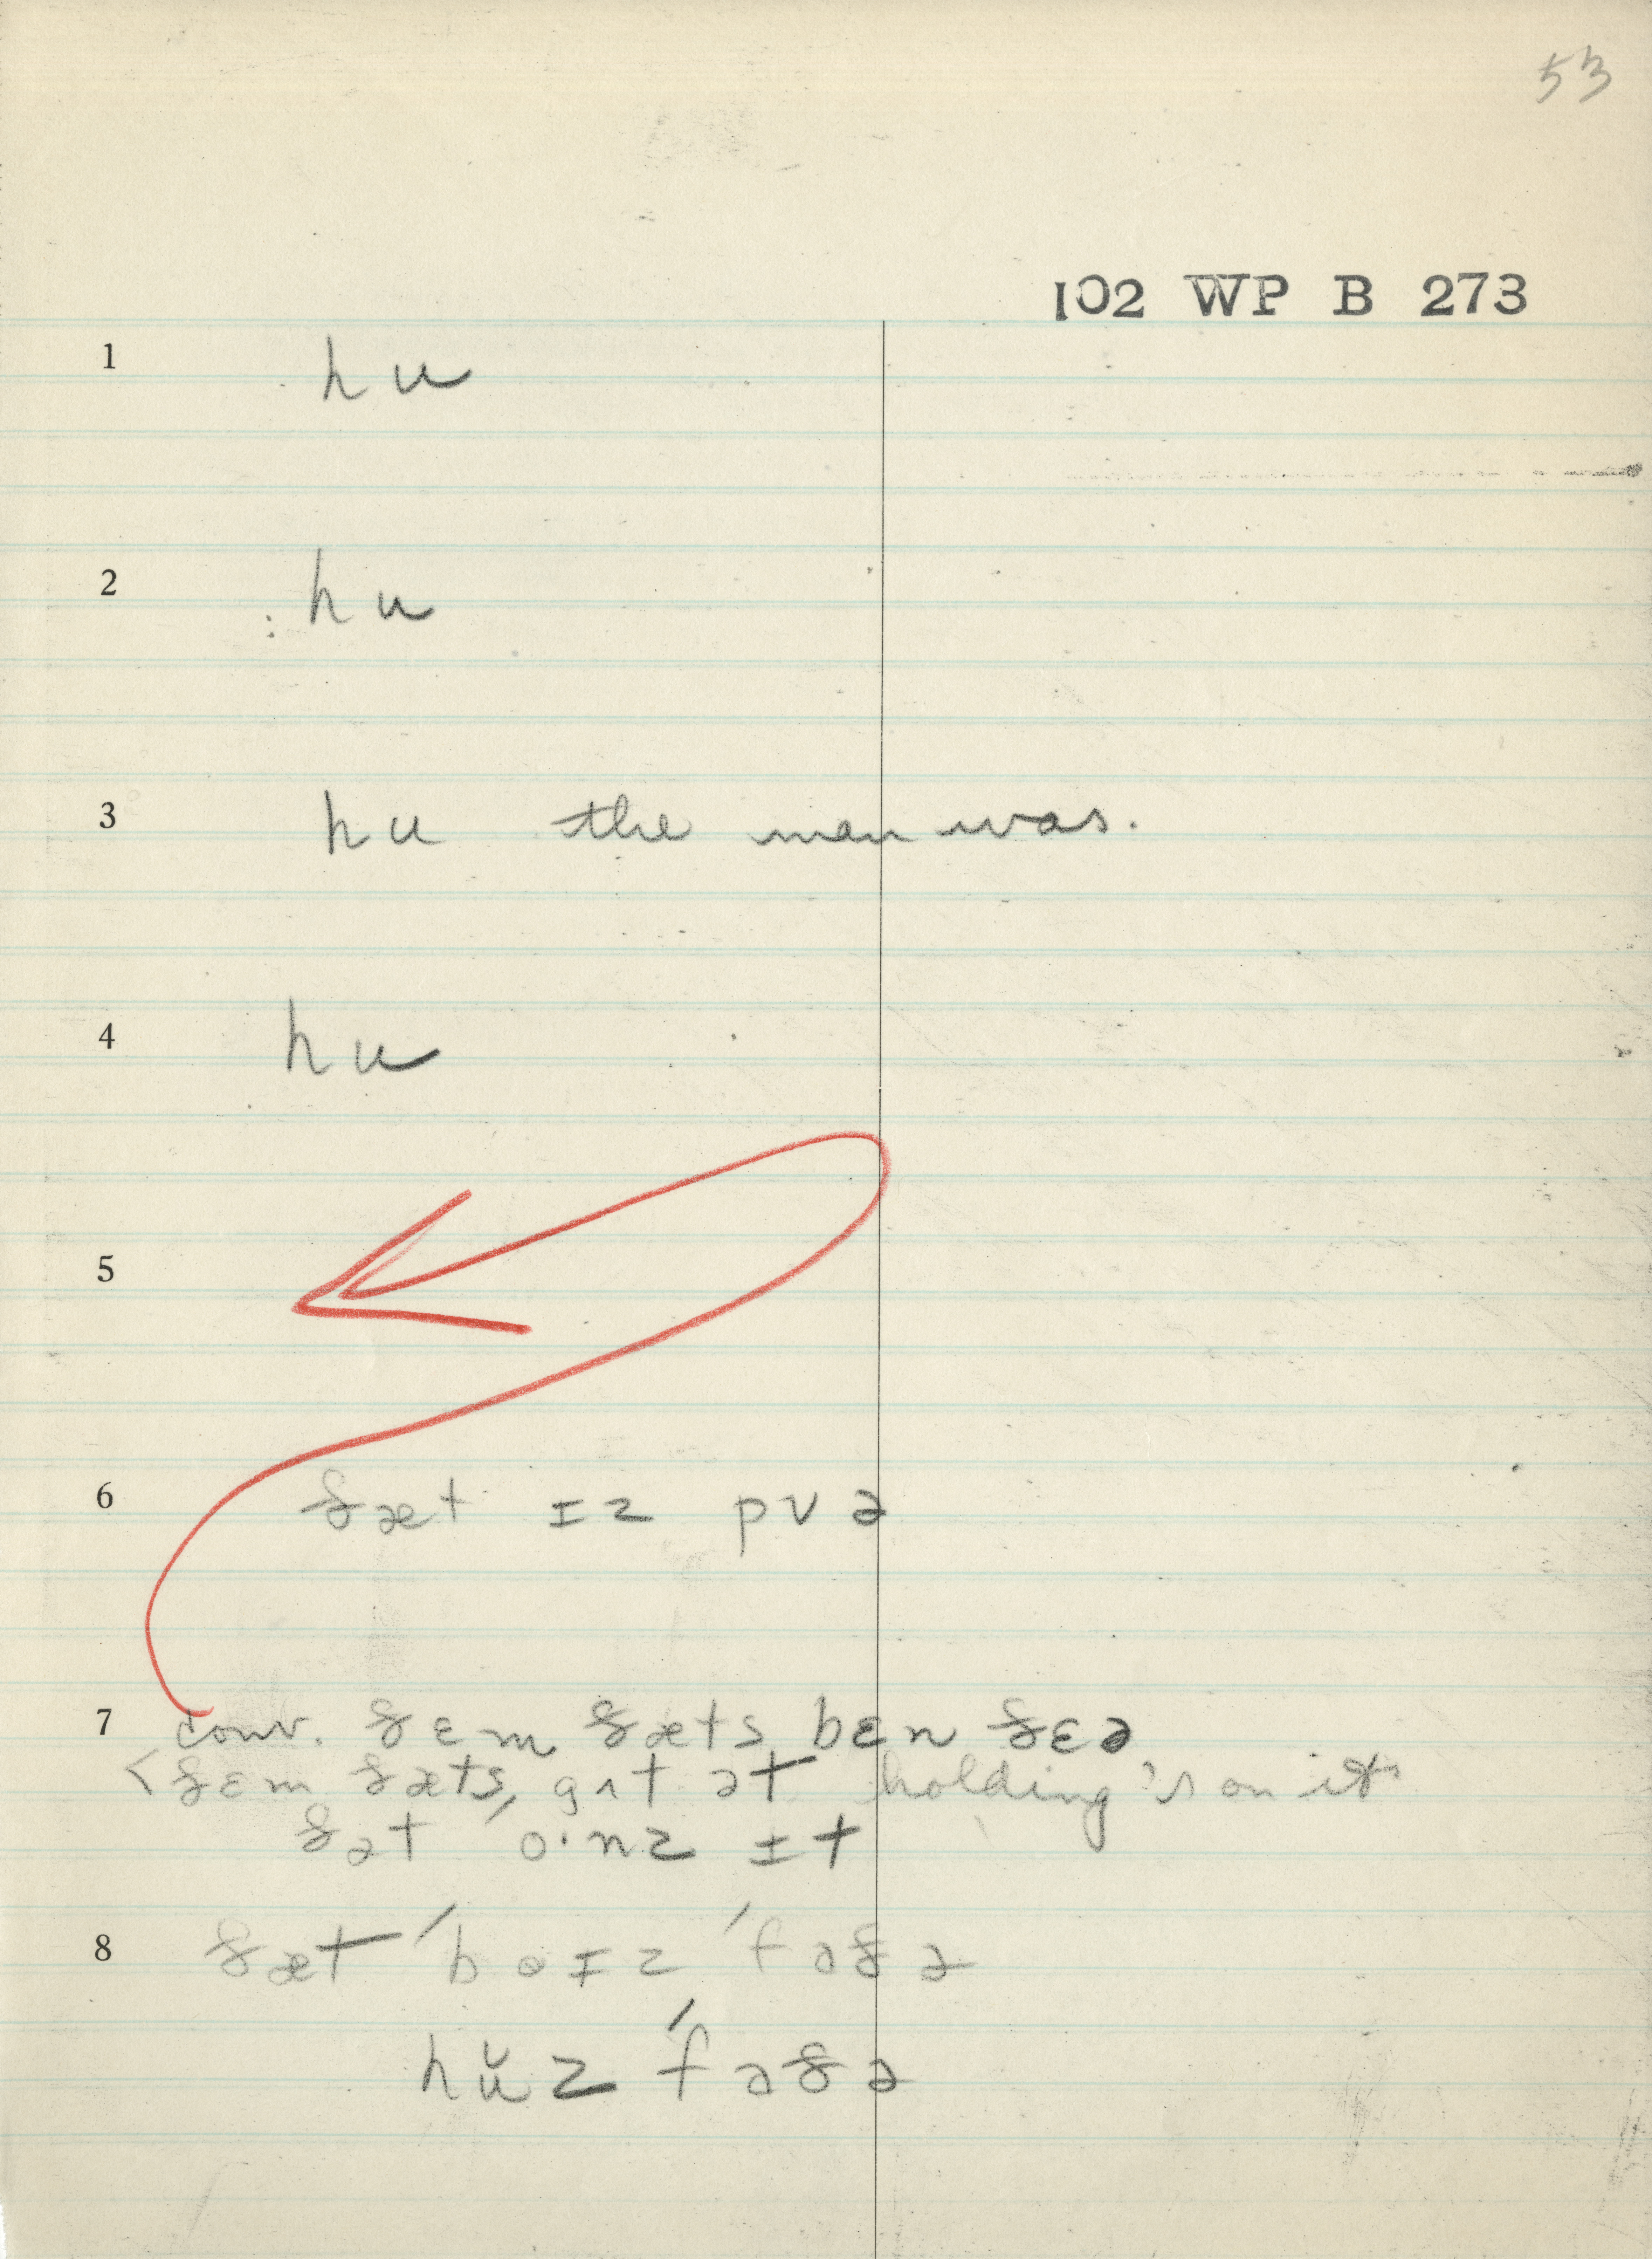 53
102 WP B 273
1 hu
2 : hu
3 hu the man was.
4 hu
5
6 ðæt ɪz pʊə
7 conv. ðɛm ðæts bɛn ðɛə
< ðɛm ðæts, gʌt ət holding 's on it
ðət 'o·nz ɪt
8 ðæt 'bɒɪz 'fɑðə
hŭz 'fɑðə